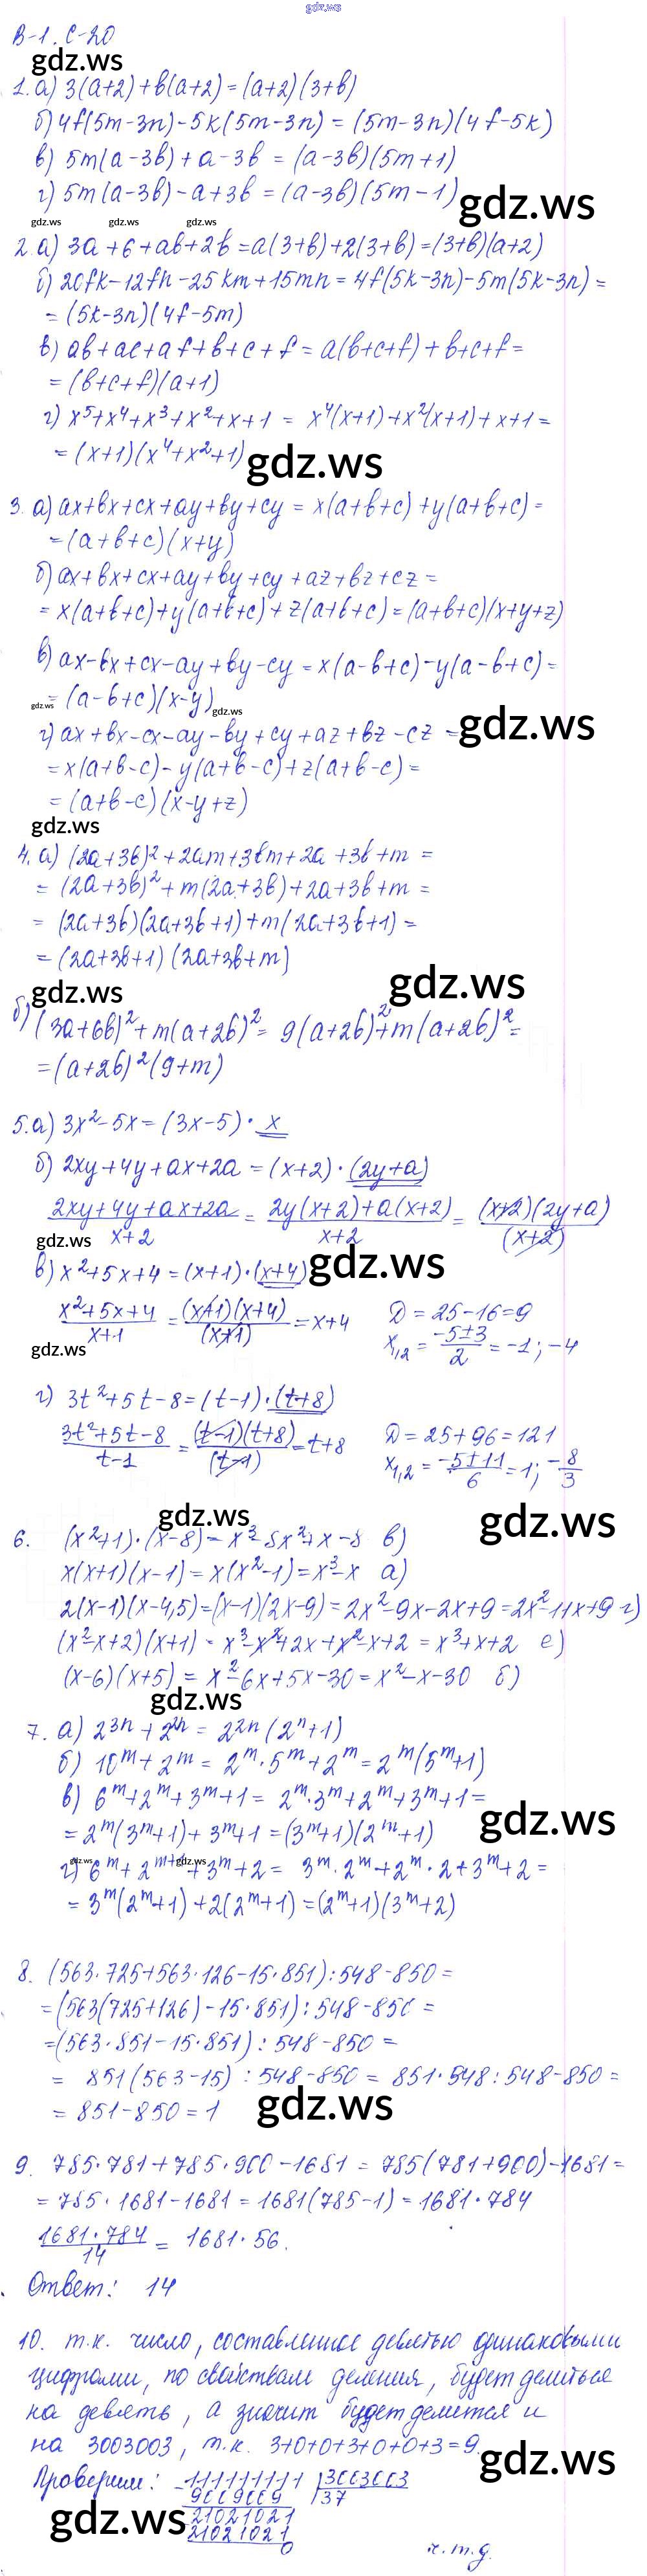 gdz.ws
В-1. С-20
gdz.ws
1. а) 3(a+2)+b(a+2)=(a+2)(3+b)
б) 4f(5m-3n)-5k(5m-3n)=(5m-3n)(4f-5k)
в) 5m(a-3b)+a-3b=(a-3b)(5m+1)
г) 5m(a-3b)-a+3b=(a-3b)(5m-1)
gdz.ws
gdz.ws gdz.ws gdz.ws
2. а) 3a+6+ab+2b=a(3+b)+2(3+b)=(3+b)(a+2)
б) 20fk-12fn-25km+15mn=4f(5k-3n)-5m(5k-3n)=
=(5k-3n)(4f-5m)
в) ab+ac+af+b+c+f=a(b+c+f)+b+c+f=
=(b+c+f)(a+1)
г) x⁵+x⁴+x³+x²+x+1=x⁴(x+1)+x²(x+1)+x+1=
=(x+1)(x⁴+x²+1)
gdz.ws
3. а) ax+bx+cx+ay+by+cy=x(a+b+c)+y(a+b+c)=
=(a+b+c)(x+y)
б) ax+bx+cx+ay+by+cy+az+bz+cz=
=x(a+b+c)+y(a+b+c)+z(a+b+c)=(a+b+c)(x+y+z)
в) ax-bx+cx-ay+by-cy=x(a-b+c)-y(a-b+c)=
=(a-b+c)(x-y)
gdz.ws gdz.ws
г) ax+bx-cx-ay-by+cy+az+bz-cz=
gdz.ws
=x(a+b-c)-y(a+b-c)+z(a+b-c)=
=(a+b-c)(x-y+z)
gdz.ws
4. а) (2a+3b)²+2am+3bm+2a+3b+m=
=(2a+3b)²+m(2a+3b)+2a+3b+m=
=(2a+3b)(2a+3b+1)+m(2a+3b+1)=
=(2a+3b+1)(2a+3b+m)
gdz.ws gdz.ws
б) (3a+6b)²+m(a+2b)²=9(a+2b)²+m(a+2b)²=
=(a+2b)²(9+m)
5. а) 3x²-5x=(3x-5)·x
б) 2xy+4y+ax+2a=(x+2)·(2y+a)
(2xy+4y+ax+2a)/(x+2)=(2y(x+2)+a(x+2))/(x+2)=((x+2)(2y+a))/(x+2)
gdz.ws
в) x²+5x+4=(x+1)·(x+4)
gdz.ws
(x²+5x+4)/(x+1)=((x+1)(x+4))/(x+1)=x+4 D=25-16=9
x₁,₂=(-5±3)/2=-1; -4
gdz.ws
г) 3t²+5t-8=(t-1)·(t+8)
(3t²+5t-8)/(t-1)=((t-1)(t+8))/(t-1)=t+8 D=25+96=121
x₁,₂=(-5±11)/6=1; -8/3
gdz.ws gdz.ws
6. (x²+1)·(x-8)=x³-8x²+x-8 в)
x(x+1)(x-1)=x(x²-1)=x³-x а)
2(x-1)(x-4,5)=(x-1)(2x-9)=2x²-9x-2x+9=2x²-11x+9 г)
(x²-x+2)(x+1)=x³-x²+2x+x²-x+2=x³+x+2 е)
(x-6)(x+5)=x²-6x+5x-30=x²-x-30 б)
gdz.ws
7. а) 2³ⁿ+2²ⁿ=2²ⁿ(2ⁿ+1)
б) 10ᵐ+2ᵐ=2ᵐ·5ᵐ+2ᵐ=2ᵐ(5ᵐ+1)
в) 6ᵐ+2ᵐ+3ᵐ+1=2ᵐ·3ᵐ+2ᵐ+3ᵐ+1=
gdz.ws
=2ᵐ(3ᵐ+1)+3ᵐ+1=(3ᵐ+1)(2ᵐ+1)
gdz.ws gdz.ws
г) 6ᵐ+2ᵐ⁺¹+3ᵐ+2=3ᵐ·2ᵐ+2ᵐ·2+3ᵐ+2=
=3ᵐ(2ᵐ+1)+2(2ᵐ+1)=(2ᵐ+1)(3ᵐ+2)
8. (563·725+563·126-15·851):548-850=
=(563(725+126)-15·851):548-850=
=(563·851-15·851):548-850=
=851(563-15):548-850=851·548:548-850=
=851-850=1
gdz.ws
9. 785·781+785·900-1681=785(781+900)-1681=
=785·1681-1681=1681(785-1)=1681·784
(1681·784)/14=1681·56.
Ответ: 14
10. т.к. число, составленное девятью одинаковыми
цифрами, по свойствам деления, будет делиться
на девять, а значит будет делится и
на 3003003, т.к. 3+0+0+3+0+0+3=9.
gdz.ws
Проверим: 111111111 | 3003003
9009009 37
21021021
21021021
0
gdz.ws
ч.т.д.